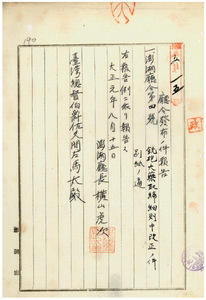 廳令發布ノ件報告
一澎湖廳令第四號
銃砲火藥取締細則中改正ノ件
別紙ノ通
右報告例ニ依リ報告ス
大正元年八月十五日
澎湖廳長 橫山虎次
臺灣總督伯爵佐久間左馬太殿